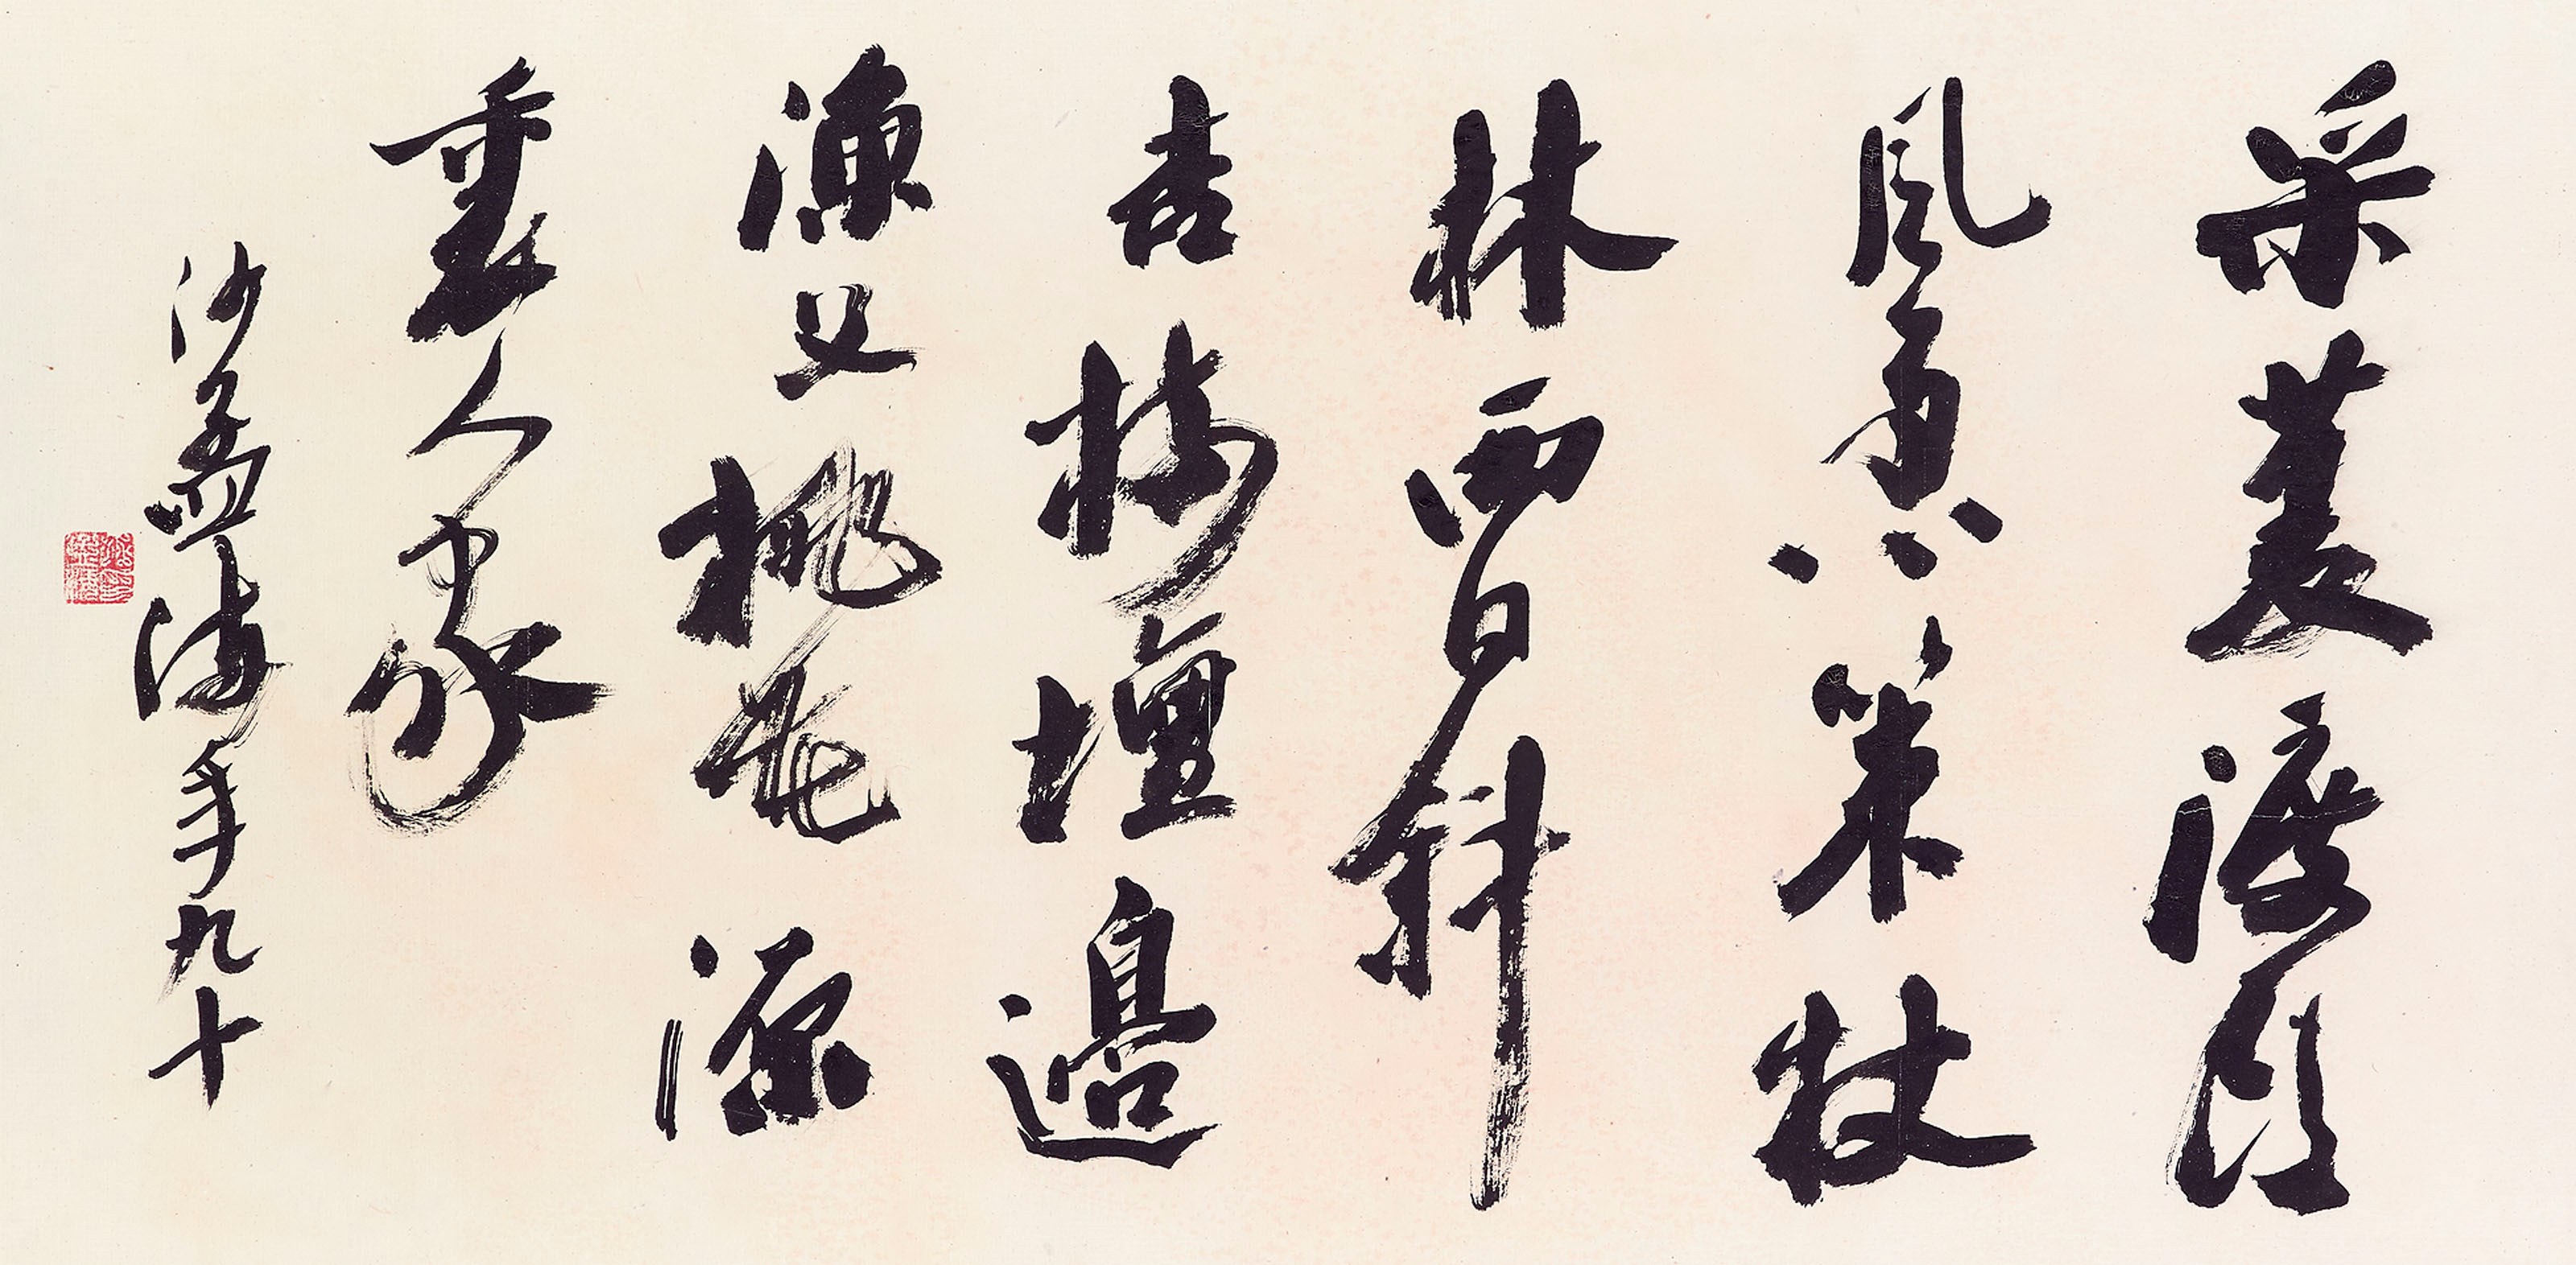 采菱渡頭
風急策杖
林西日斜
杏樹壇邊
漁父桃花源
裏人家
沙孟海年九十